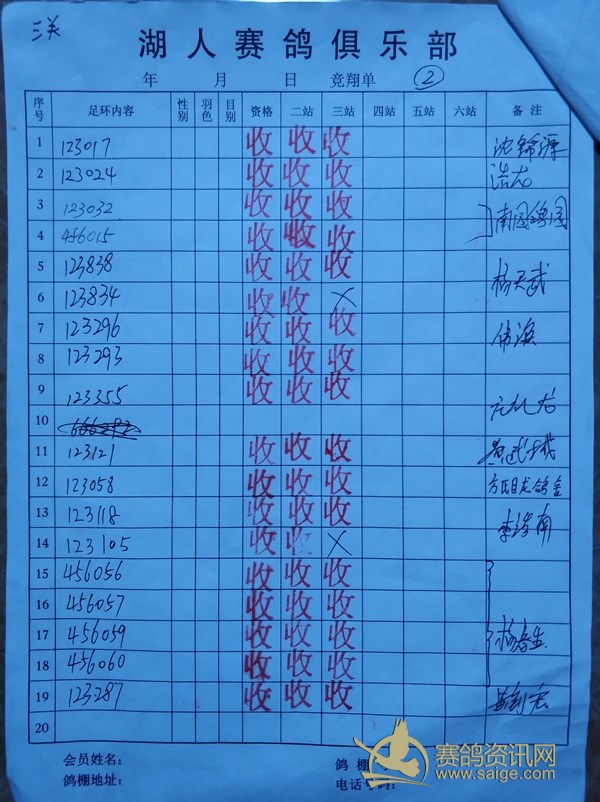 三关
湖人赛鸽俱乐部
年 月 日 竞翔单 ②
序号 足环内容 性别 羽色 目别 资格 二站 三站 四站 五站 六站 备注
1 123017 收 收 收
2 123024 收 收 收 浩龙
3 123032 收 收 收
4 456015 收 收 收
5 123838 收 收 收
6 123834 收 收 ×
7 123296 收 收 收
8 123293 收 收 收
9 123355 收 收 收
10
11 123121 收 收 收
12 123058 收 收 收
13 123118 收 收 收
14 123105 收 收 ×
15 456056 收 收 收
16 456057 收 收 收
17 456059 收 收 收 杨春生
18 456060 收 收 收
19 123287 收 收 收
20
会员姓名： 鸽棚
鸽棚地址： 电话号码：
赛鸽资讯网
www.saige.com